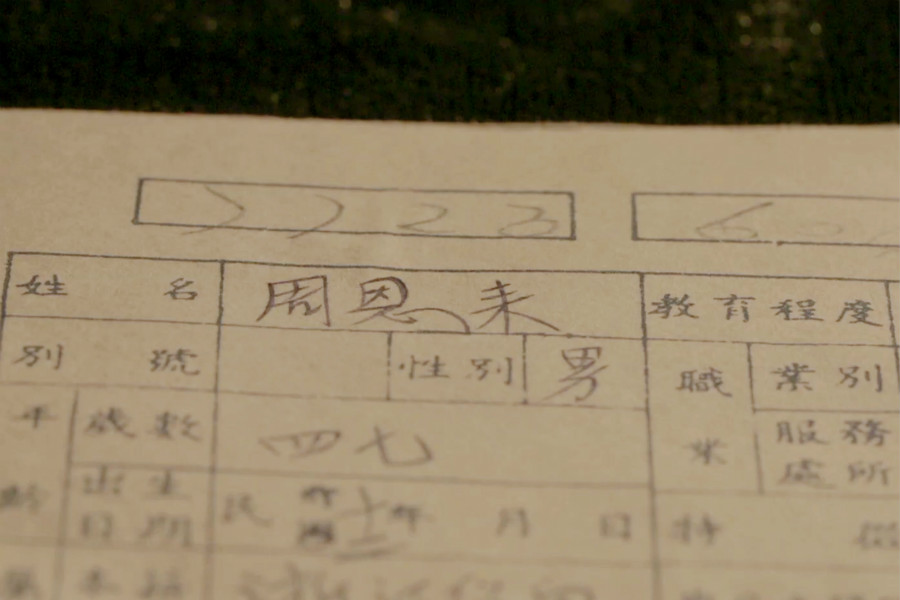 2223
6
姓名 周恩来 教育程度
別號 性別 男 職業 業別
年齡 歲數 四七 服務處所
出生日期 民 年 月 日 特